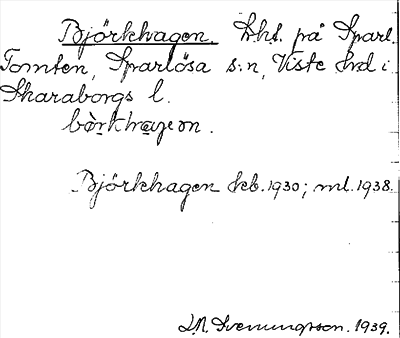 Björkhagen. Lht. på Sparl.
Tomten, Sparlösa s:n, Viste hrd i
Skaraborgs l.
bò̱rkha̱gen.
Björkhagen kb. 1930; ml. 1938.
Svenungsson. 1939.